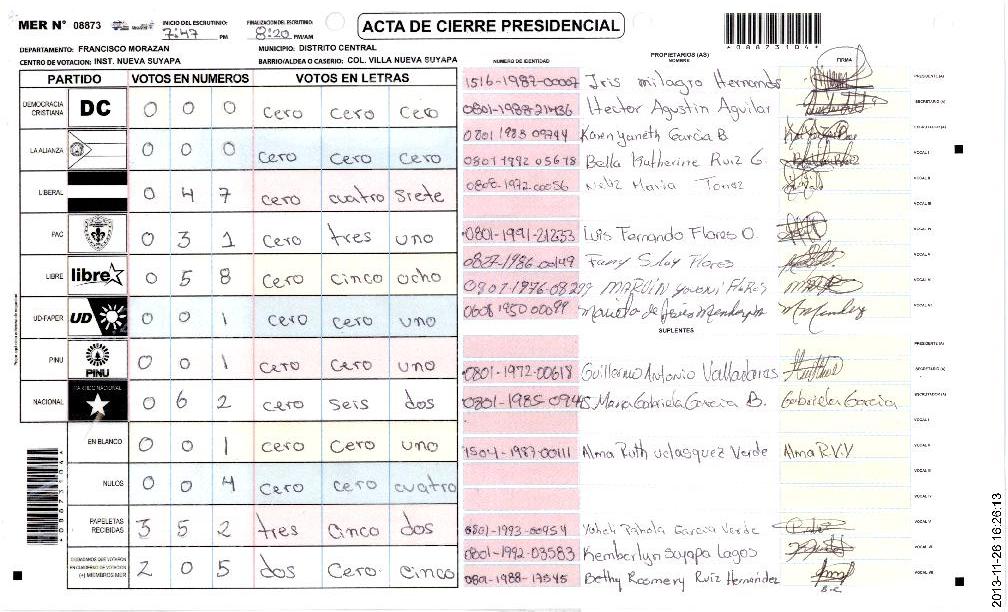 MER N° 08873 INICIO DEL ESCRUTINIO: 7:47 PM FINALIZACION DEL ESCRUTINIO: 8:20 PM/AM
ACTA DE CIERRE PRESIDENCIAL
*08873104*
DEPARTAMENTO: FRANCISCO MORAZAN MUNICIPIO: DISTRITO CENTRAL
CENTRO DE VOTACION: INST. NUEVA SUYAPA BARRIO/ALDEA O CASERIO: COL. VILLA NUEVA SUYAPA
PARTIDO VOTOS EN NUMEROS VOTOS EN LETRAS
DEMOCRACIA CRISTIANA DC 0 0 0 cero cero cero
LA ALIANZA 0 0 0 cero cero cero
LIBERAL 0 4 7 cero cuatro siete
PAC 0 3 1 cero tres uno
LIBRE libre 0 5 8 cero cinco ocho
UD-FAPER UD 0 0 1 cero cero uno
PINU PINU 0 0 1 cero cero uno
NACIONAL PARTIDO NACIONAL 0 6 2 cero seis dos
EN BLANCO 0 0 1 cero cero uno
NULOS 0 0 4 cero cero cuatro
PAPELETAS RECIBIDAS 3 5 2 tres cinco dos
CIUDADANOS QUE VOTARON EN CUADERNO DE VOTACION (+) MIEMBROS MER 2 0 5 dos cero cinco
NUMERO DE IDENTIDAD PROPIETARIOS (AS) NOMBRE FIRMA
1516-1987-00007 Iris milagro Hernands PRESIDENTE(A)
0801-1988-21436 Hector Agustin Aguilar SECRETARIO (A)
0801 1983 09744 Karen yaneth Garcia B. ESCRUTADOR(A)
0801 1992 05678 Bella Katherine Ruiz G. VOCAL I
0808-1972-00056 Maria Torrez VOCAL II
VOCAL III
0801-1991-21233 Luis Fernando Flores O. VOCAL IV
0827-1986-00149 Fany Suay Flores VOCAL V
MARVIN Yovani Flores
0608 1950 00099 Marieta de Jesus M Mendez
SUPLENTES
PRESIDENTE(A)
0801-1972-00618 Guillermo Antonio Valladares SECRETARIO (A)
0801-1985-0945 Maria Gabriela Garcia B. Gabriela Garcia ESCRUTADOR(A)
VOCAL I
1504-1987-00111 Alma Ruth velasquez Verde Alma R.V.V VOCAL II
VOCAL III
VOCAL IV
0801-1993-00954 Garcia Verde VOCAL V
0801-1992-03583 Kemberlyn Suyapa Lagos VOCAL VI
0801-1988-17545 Bethy Rosmery Ruiz Hernández VOCAL VII
*08873104*
2013-11-26 16:26:13